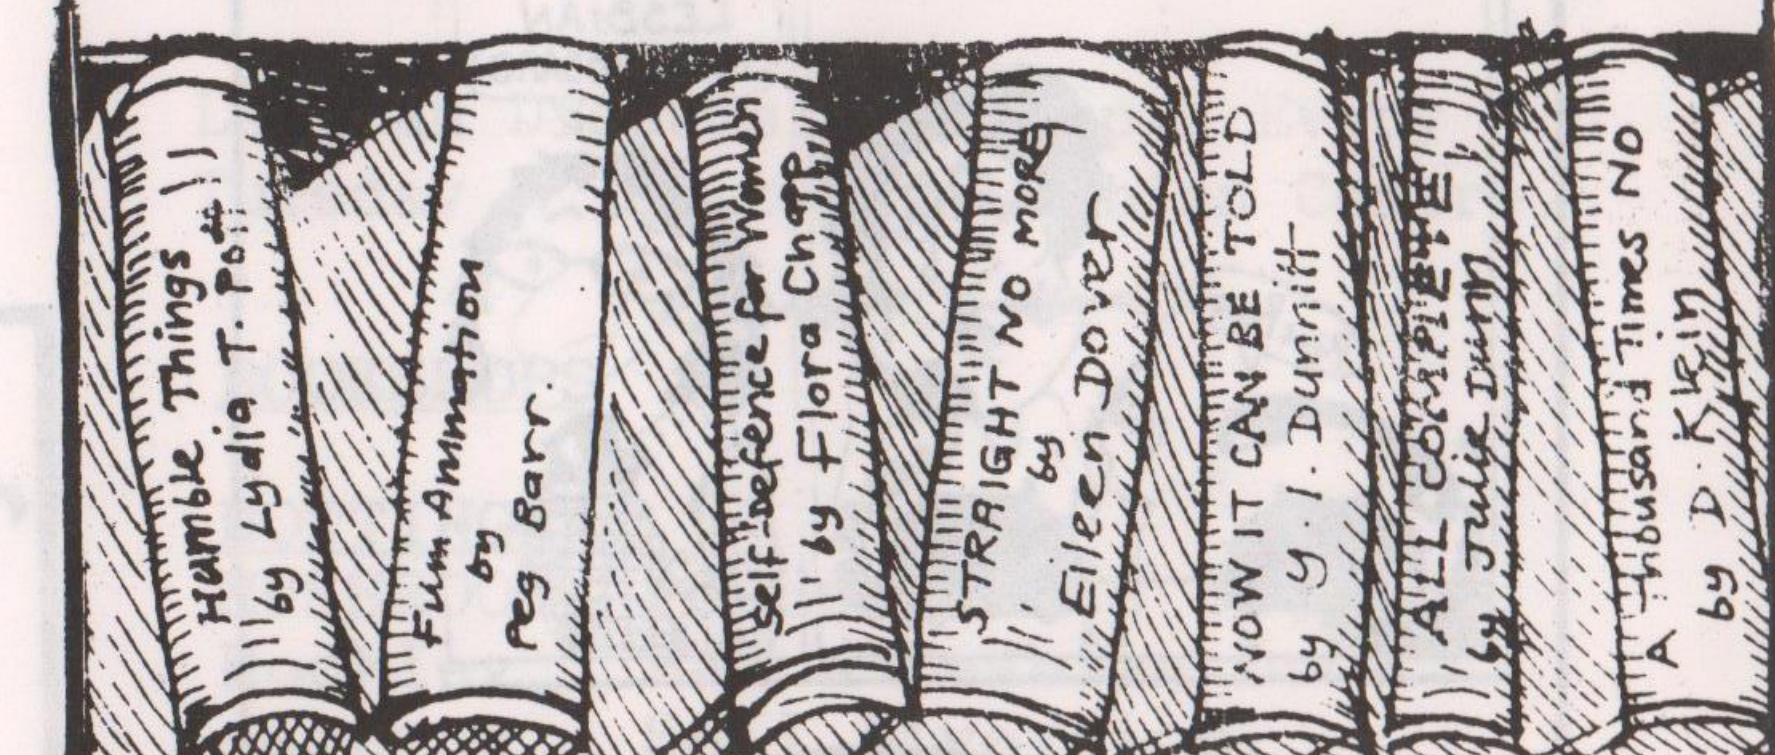 Humble Things
by Lydia T. Pott
Film Animation
by
Peg Barr
Self-Defence for Women
by Flora Chapp
STRAIGHT NO MORE
by
Eileen Dover
NOW IT CAN BE TOLD
by Y. I. Dunnitt
ALL COMPLETE
by Julie Dunn
A Thousand Times NO
by D. Klein